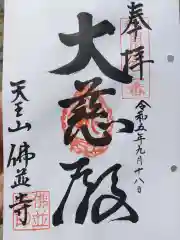 奉拝
令和五年九月十八日
大慈殿
天王山 佛並寺